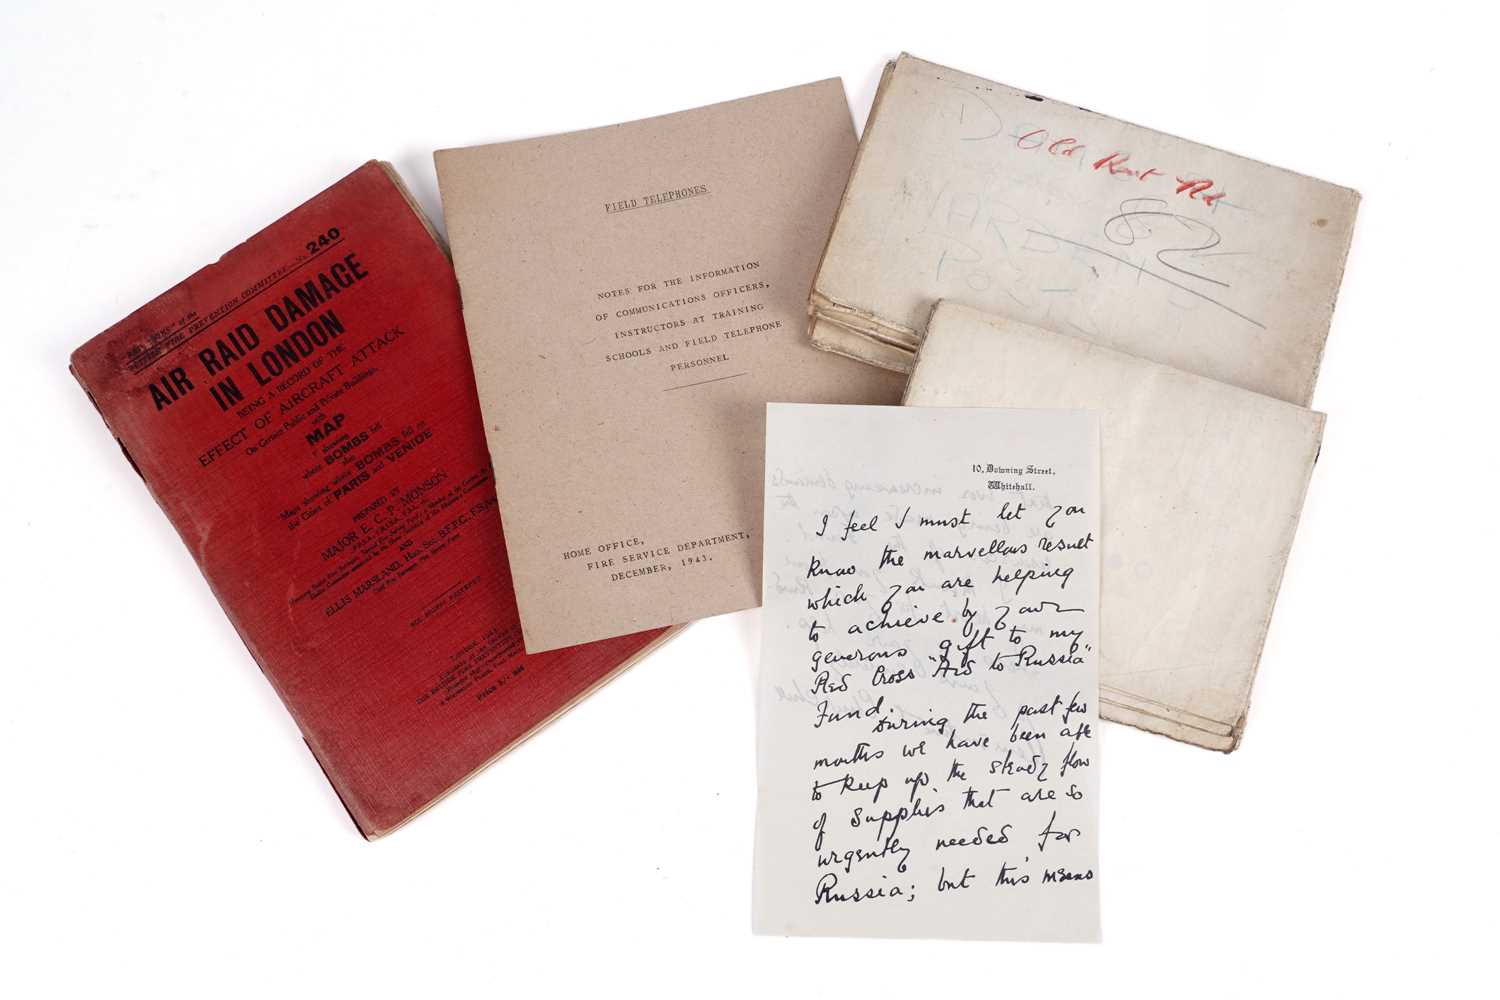 "RED BOOKS" of the
BRITISH FIRE PREVENTION COMMITTEE—No. 240
AIR RAID DAMAGE
IN LONDON
BEING A RECORD OF THE
EFFECT OF AIRCRAFT ATTACK
On Certain Public and Private Buildings,
with
MAP
showing
where BOMBS fell
also
Maps showing where BOMBS fell on
the Cities of PARIS and VENICE
PREPARED BY
MAJOR E. C. P. MONSON
AND
ELLIS MARSLAND, Hon. Sec. B.F.P.C.
ALL RIGHTS RESERVED
LONDON, 1923
Price 5/- net
FIELD TELEPHONES
NOTES FOR THE INFORMATION
OF COMMUNICATIONS OFFICERS,
INSTRUCTORS AT TRAINING
SCHOOLS AND FIELD TELEPHONE
PERSONNEL
HOME OFFICE,
FIRE SERVICE DEPARTMENT,
DECEMBER, 1943.
Old Kent Rd
82
WARDEN
POST
10, Downing Street,
Whitehall.
I feel I must let you
know the marvellous result
which you are helping
to achieve by your
generous gift to my
Red Cross "Aid to Russia"
Fund.
During the past few
months we have been able
to keep up the steady flow
of supplies that are so
urgently needed for
Russia; but this means